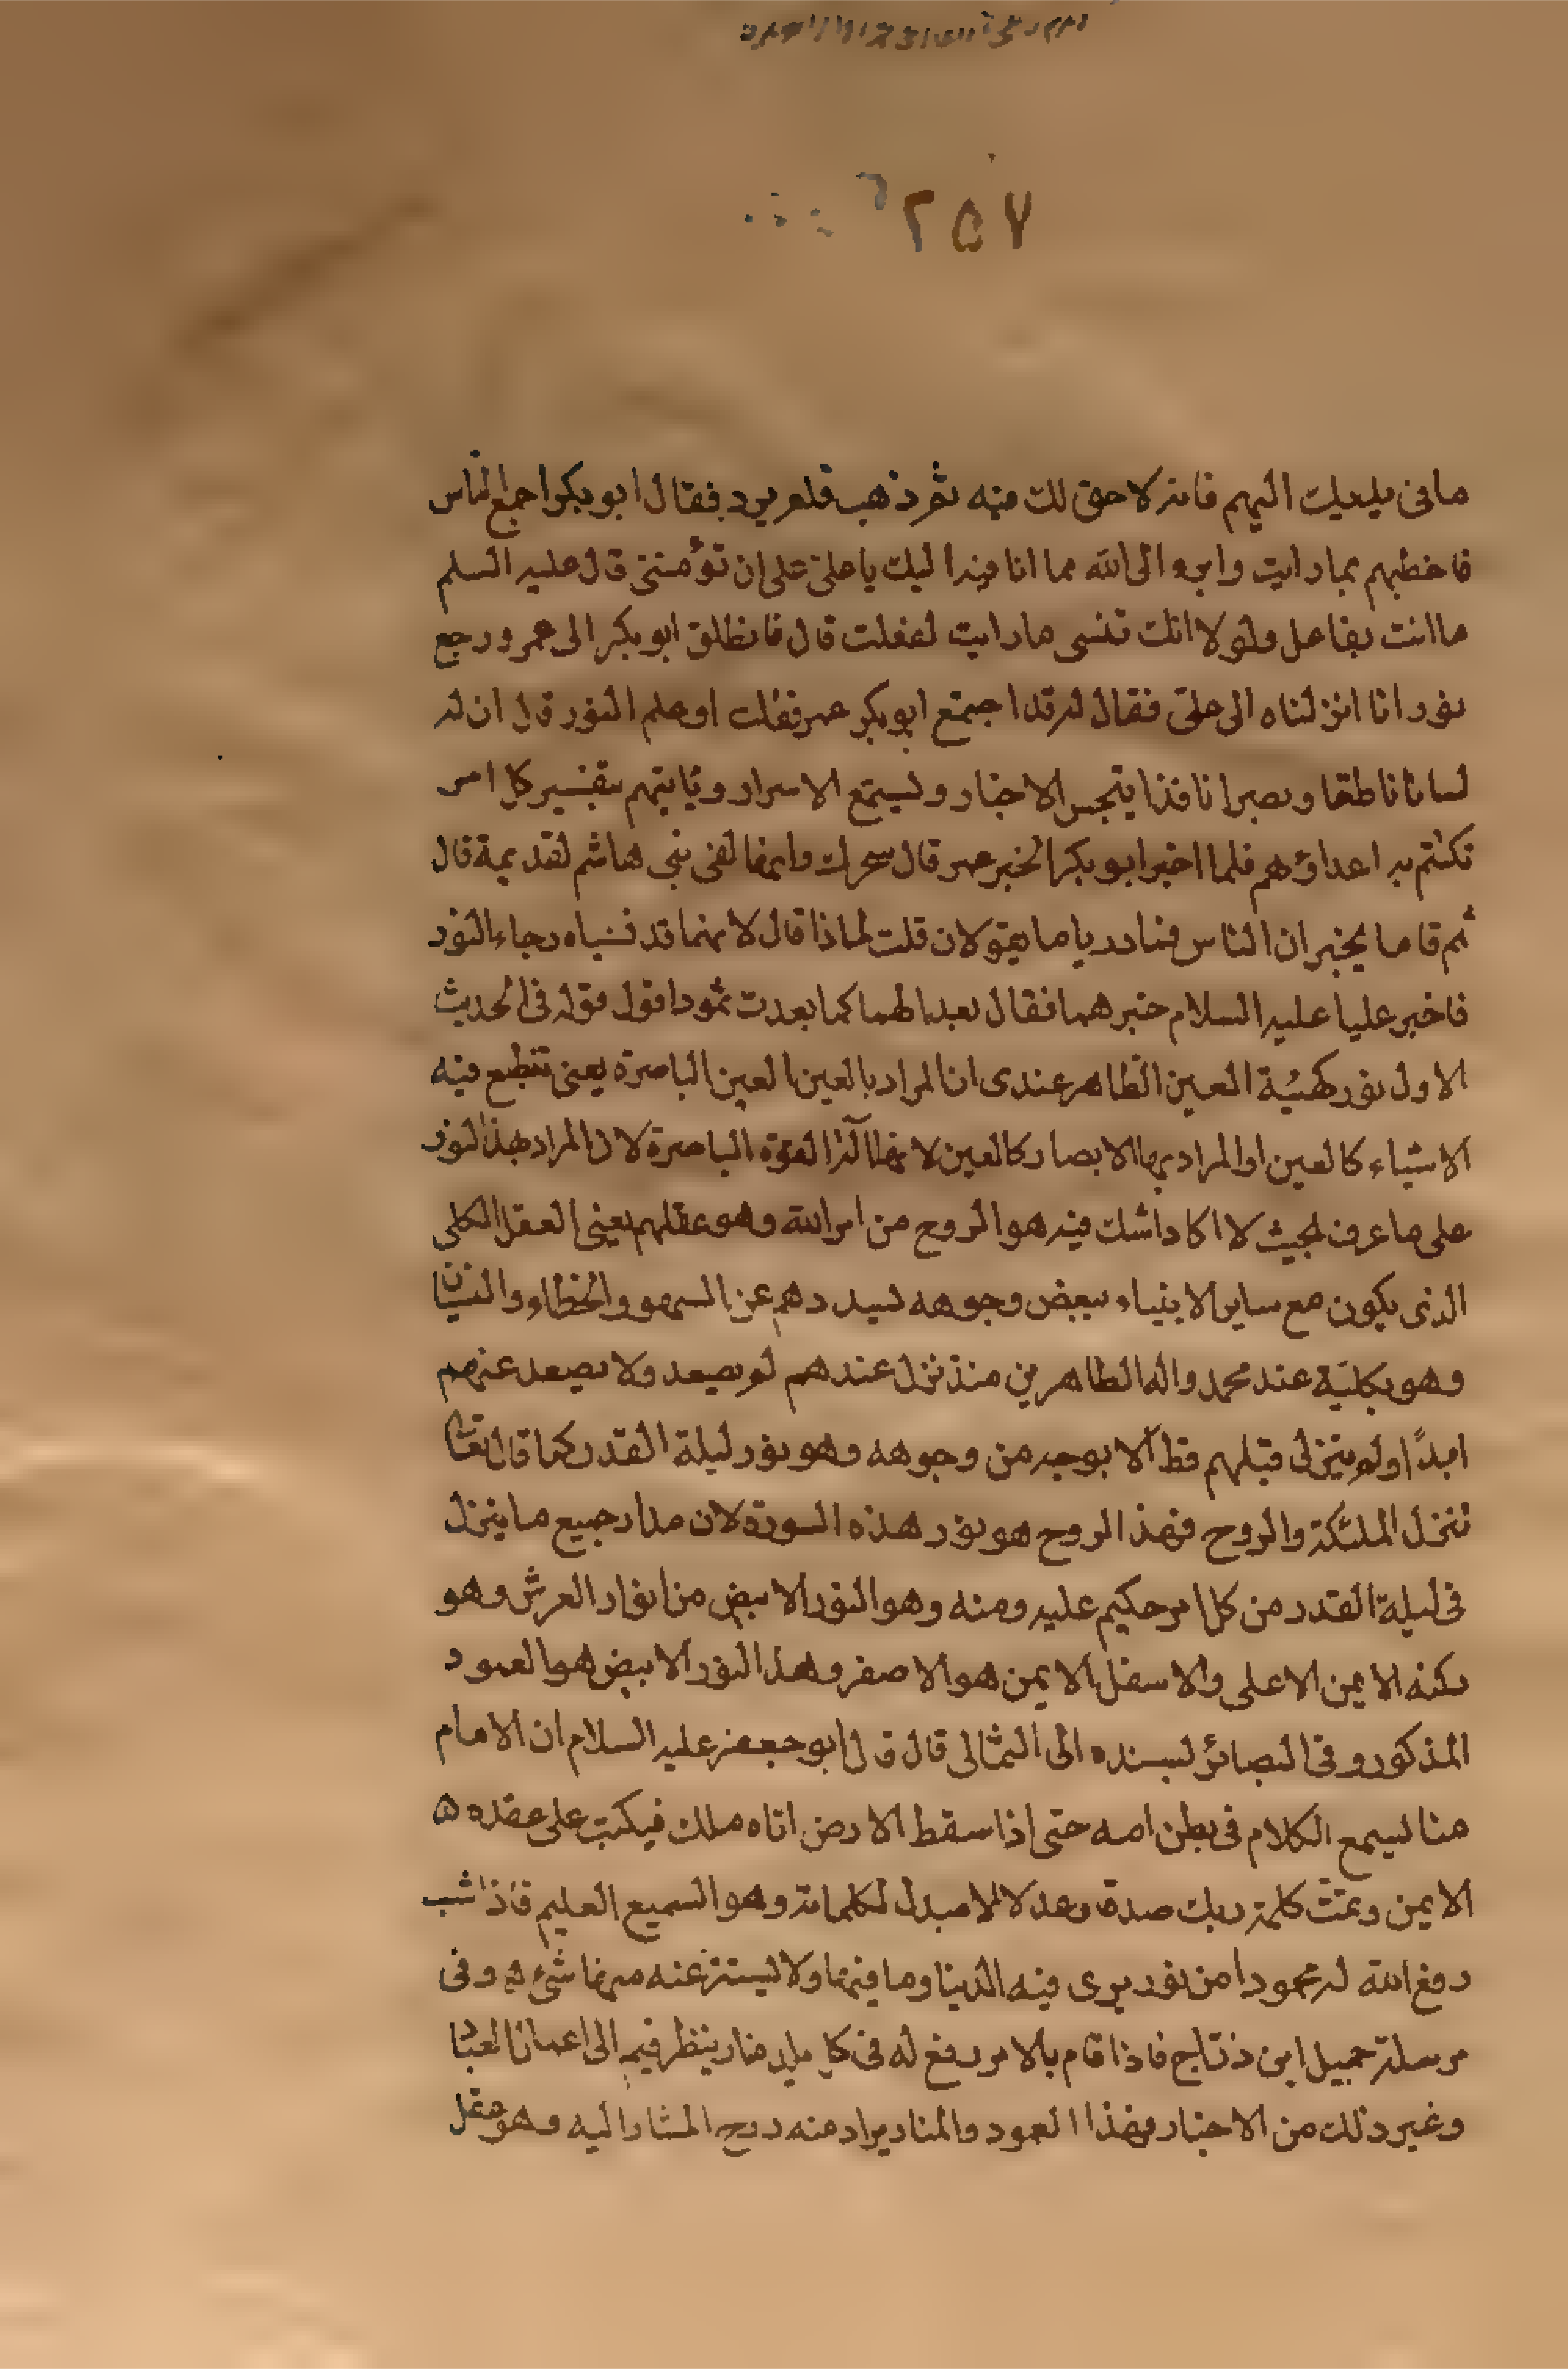 ٢٥٧
ما في يديك اليهم فانه لا حق لك فيه ثم ذهب فلم يرد فقال ابو بكر اجمع الناس
فاخطبهم بما رايت وابرء الى الله مما انا فيه اليك يا علي على ان تؤمنني قال عليه السلم
ما انت بفاعل ولولا انك تنسى ما رايت لفعلت قال فانطلق ابو بكر الى عمر ورجع
نور انا انزلناه الى علي فقال له قد اجتمع ابو بكر عمر فقلت او علم النور قال ان له
لسانا ناطقا وبصرا نافذا يتجسس الاخبار ويستمع الاسرار وياتيهم بتفسير كل امر
تكتتم به اعداؤهم فلما اخبر ابو بكر الخبر عمر قال سحرك وانها لفي بني هاشم لقديمة قال
ثم قاما يخبران الناس فما دريا ما يقولان قلت لماذا قال لانهما قد نسياه وجاء النور
فاخبر عليا عليه السلام خبرهما فقال بعدا لهما كما بعدت ثمود اقول قوله في الحديث
الاول نور كهيئة العين الظاهر عندي ان المراد بالعين العين الباصرة يعني تنطبع فيه
الاشياء كالعين او المراد بها الابصار كالعين لانها آلة القوة الباصرة لان المراد بهذا النور
على ما عرف بحيث لا اكاد اشك فيه هو الروح من امر الله وهو عقلهم يعني العقل الكلي
الذي يكون مع ساير الانبياء ببعض وجوهه ليسددهم عن السهو والخطاء والنسيان
وهو بكليته عند محمد واله الطاهرين منذ نزل عندهم لم يصعد ولا يصعد عنهم
ابدًا ولم ينزل قبلهم قط الا بوجه من وجوهه وهو نور ليلة القدر كما قال تعا
تنزل الملئكة والروح فهذا الروح هو نور هذه السورة لان مدار جميع ما ينزل
في ليلة القدر من كل امر حكيم عليه ومنه وهو النور الابيض من انوار العرش وهو
ركنه الايمن الاعلى والاسفل الايمن هو الاصفر وهذا النور الابيض هو العمود
المذكور وفي البصائر بسنده الى الثمالي قال قال ابو جعفر عليه السلام ان الامام
منا ليسمع الكلام في بطن امه حتى اذا سقط الارض اتاه ملك فيكتب على عضده
الايمن وتمت كلمة ربك صدقا وعدلا لا مبدل لكلماته وهو السميع العليم فاذا شب
رفع الله له عمودا من نور يرى فيه الدنيا وما فيها ولا يستتر عنه منها شيء وفي
مرسلة جميل ابن دراج فاذا قام بالامر رفع له في كل بلد منار ينظر فيه الى اعمال العباد
وغير ذلك من الاخبار فهذا العمود والمنار يراد منه روح المشار اليه وهو عقل